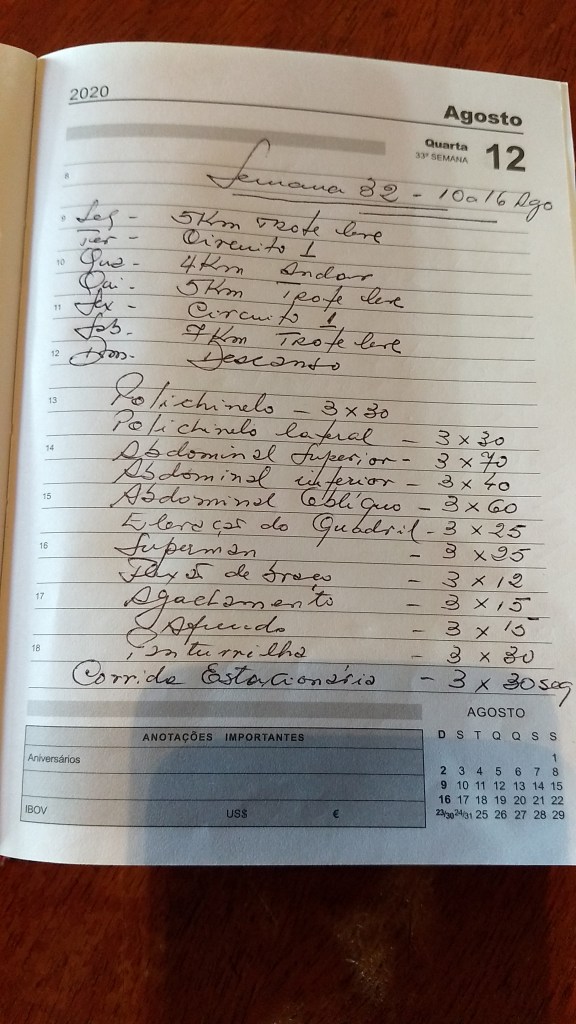 2020
Agosto
Quarta
33ª SEMANA
12
8
Semana 32 - 10 a 16 Ago
9 Seg - 5Km Trote leve
Ter - Circuito 1
10 Qua - 4Km Andar
Qui - 5Km Trote leve
11 Sex - Circuito 1
Sab - 7Km Trote leve
12 Dom - Descanso
13 Polichinelo - 3 x 30
Polichinelo lateral - 3 x 30
14 Abdominal Superior - 3 x 70
Abdominal inferior - 3 x 40
15 Abdominal Oblíquo - 3 x 60
Elevação do Quadril - 3 x 25
16 Superman - 3 x 25
Flexão de braço - 3 x 12
17 Agachamento - 3 x 15
Afundo - 3 x 15
18 Panturrilha - 3 x 30
Corrida Estacionária - 3 x 30 seg
ANOTAÇÕES IMPORTANTES
Aniversários
IBOV US$ €
AGOSTO
D S T Q Q S S
1
2 3 4 5 6 7 8
9 10 11 12 13 14 15
16 17 18 19 20 21 22
23/30 24/31 25 26 27 28 29